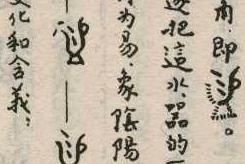 即
把這水器的
為易，象陰陽
化和含義：